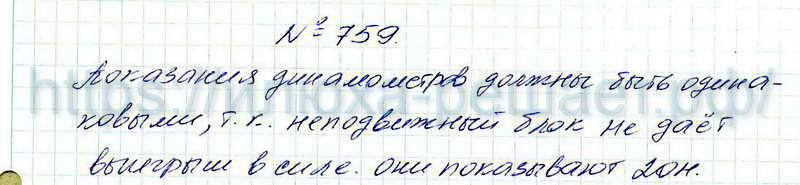 № 759.
Показания динамометров должны быть одина-
ковыми, т.к. неподвижный блок не даёт
выигрыш в силе. они показывают 20н.